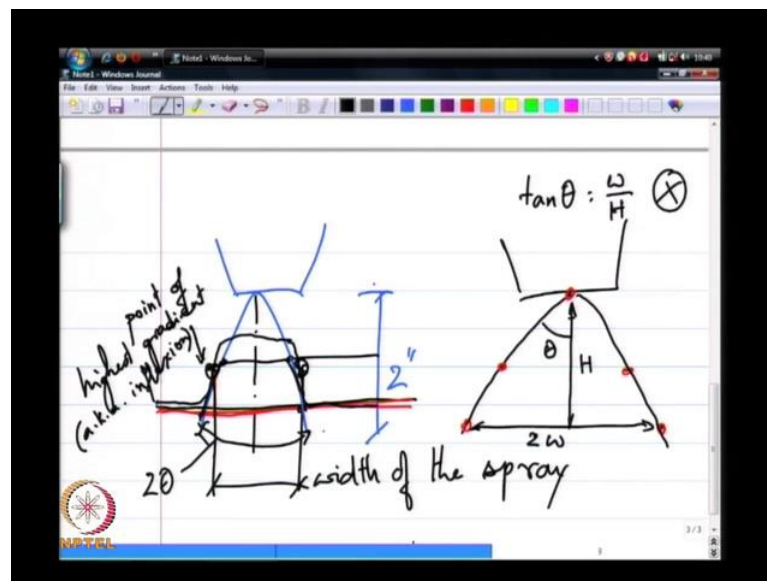 Note1 - Windows Jo...
10:40
Note1 - Windows Journal
File Edit View Insert Actions Tools Help
B I
tan θ : w/H X
point of
highest gradient
(a.k.a. inflexion)
2"
θ
H
2w
2θ
width of the spray
3/3
3
NPTEL